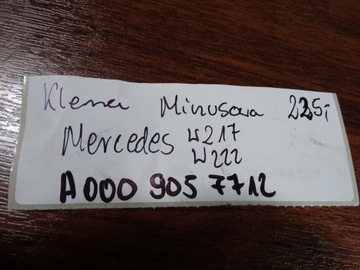 Klema Minusowa 225,-
Mercedes W217
W222
A000 905 7712